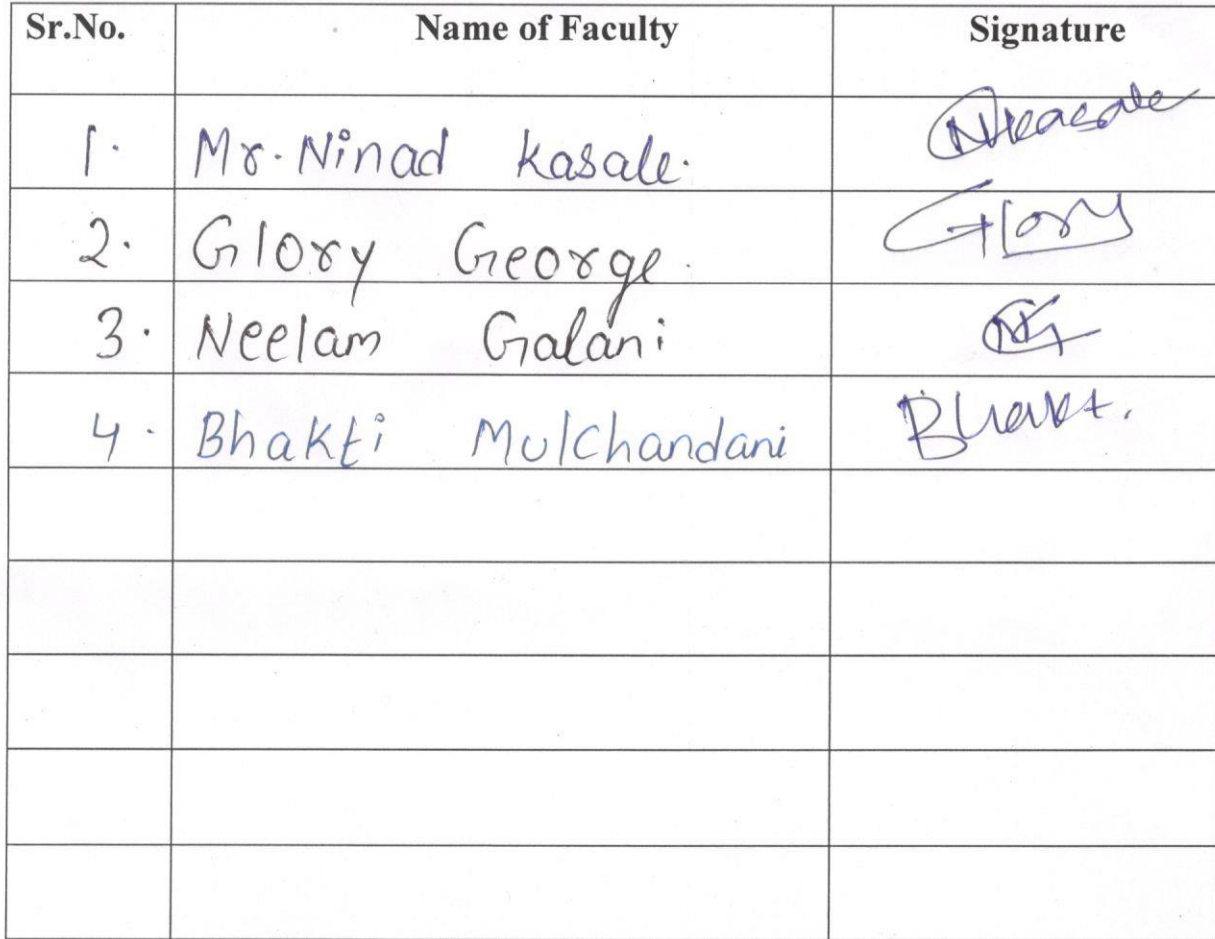 Sr.No. Name of Faculty Signature
1. Mr. Ninad Kasale. NKasale
2. Glory George. Glory
3. Neelam Galani NG
4. Bhakti Mulchandani Bhakt.